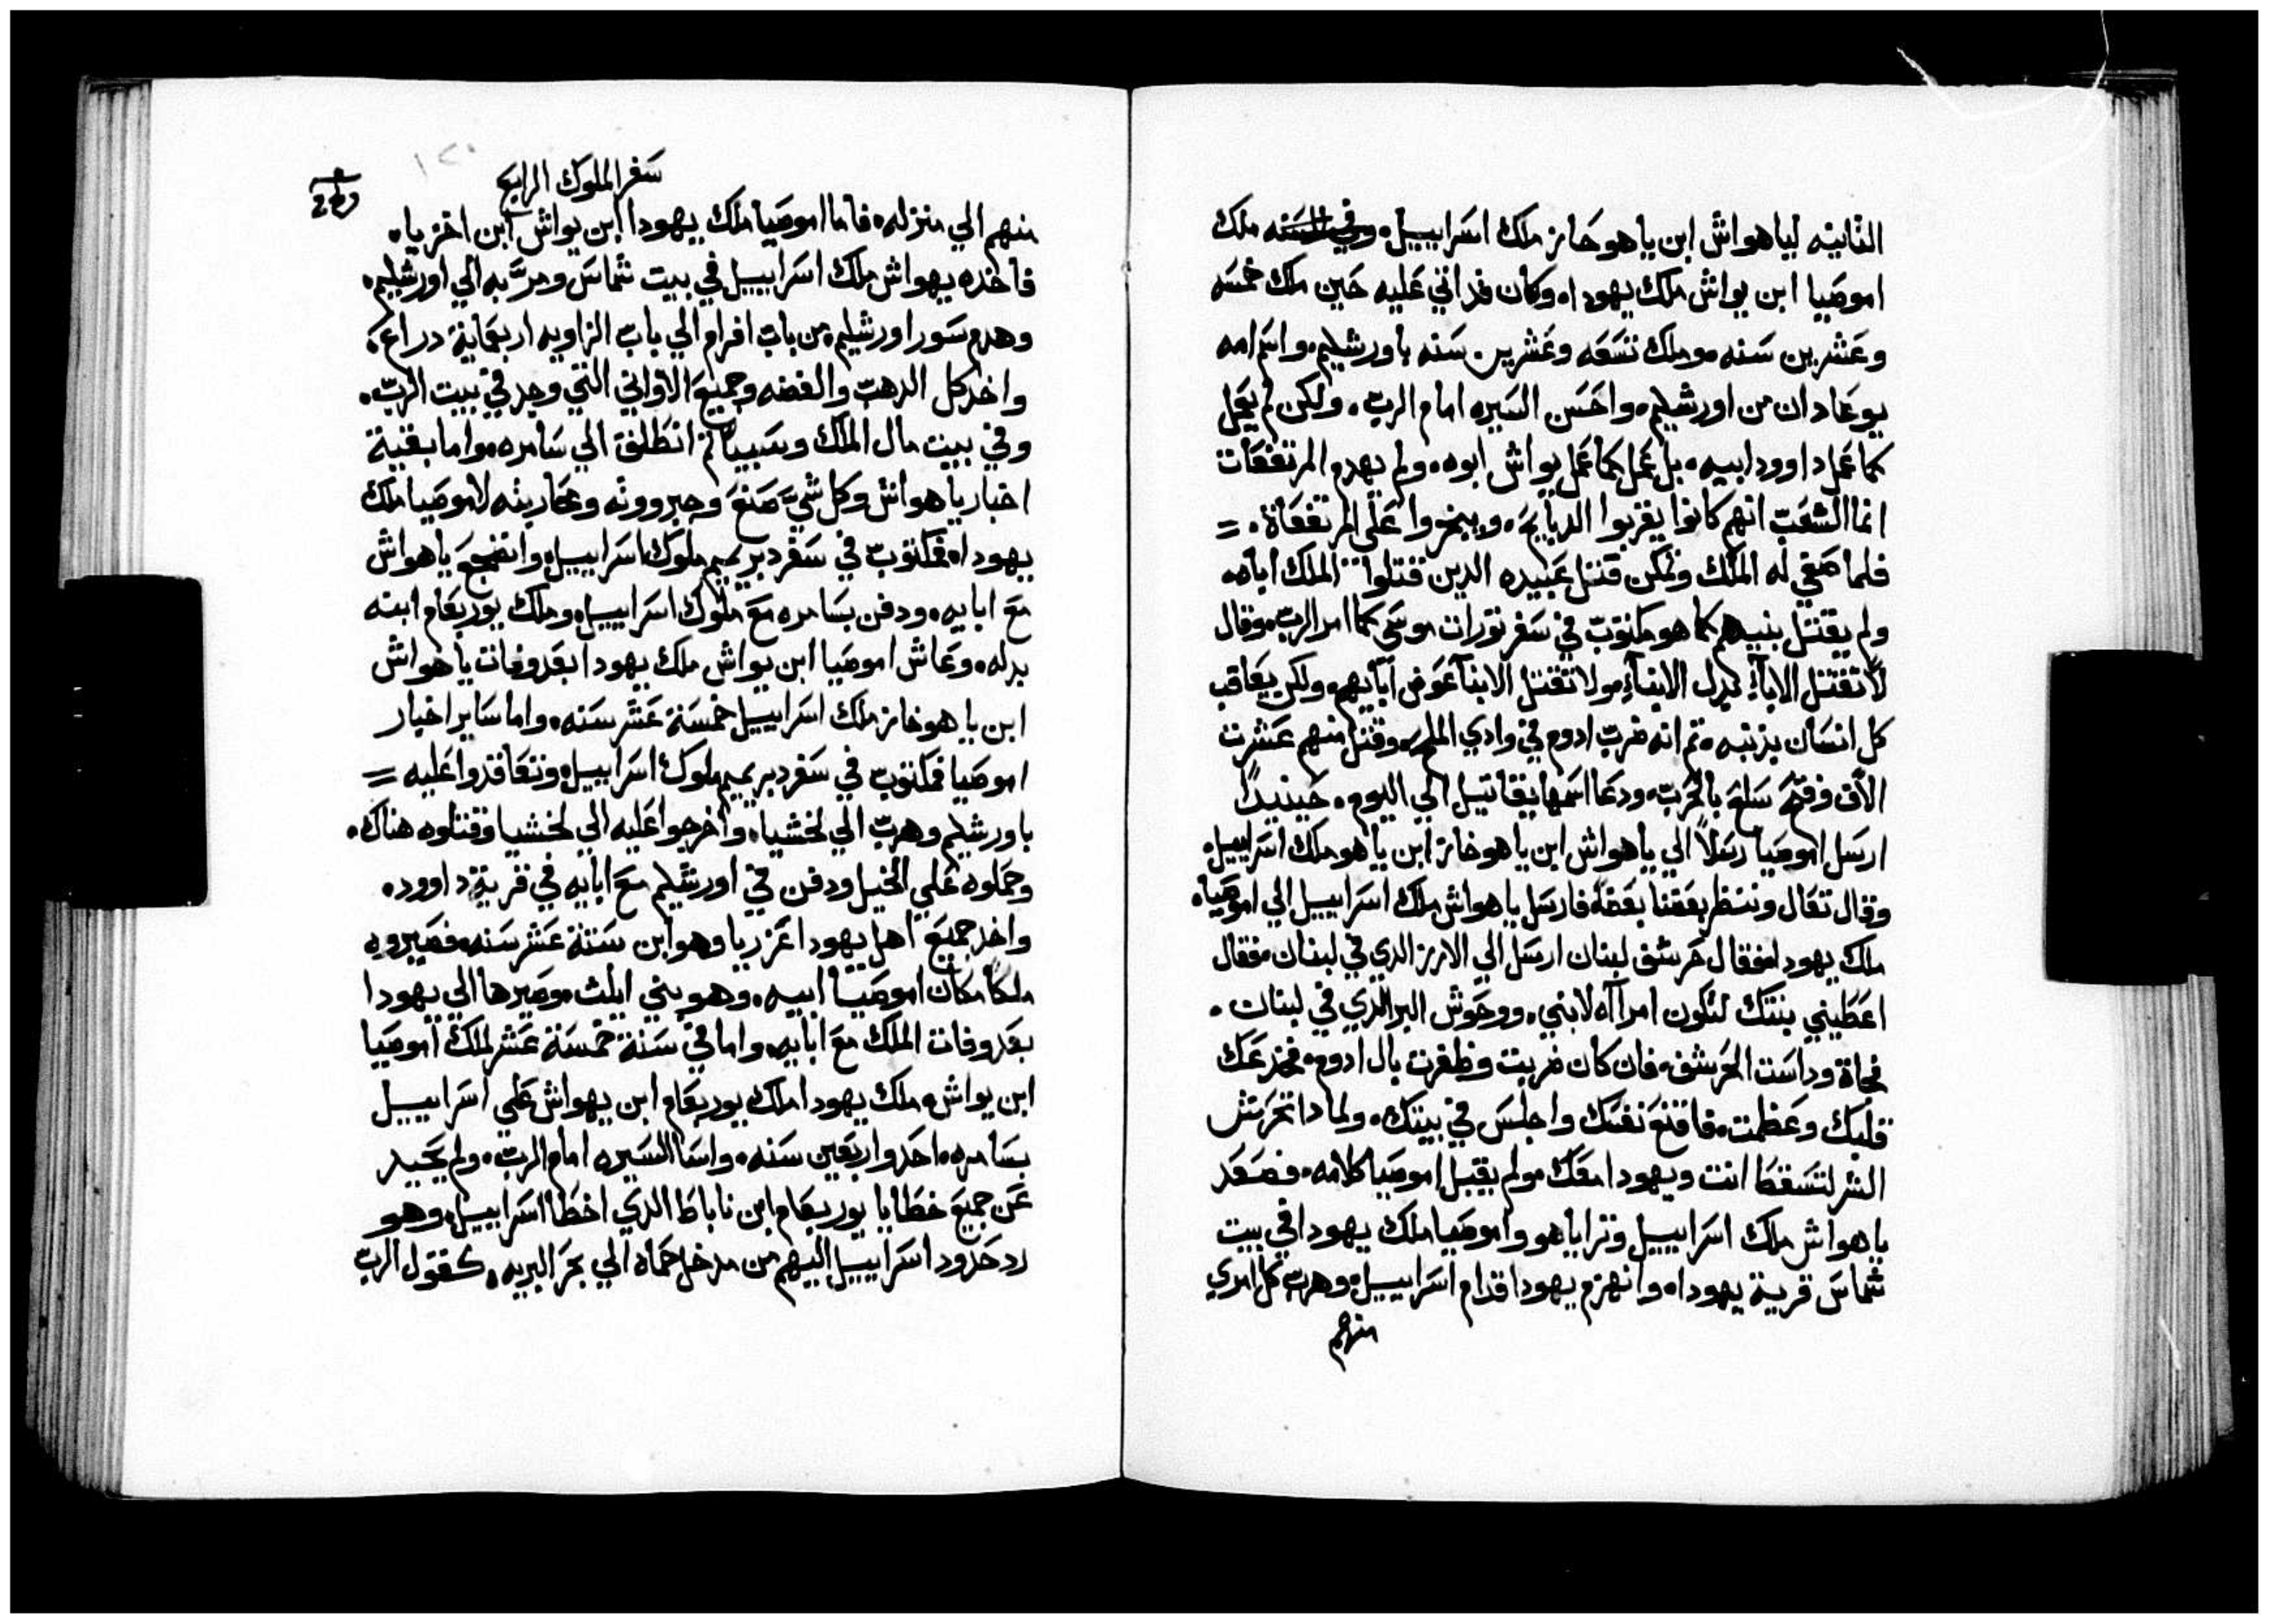 الثانيه ليا هواش ابن ياهوحاز ملك اسراييل وفي السنه ملك
اموصيا ابن يواش ملك يهودا وكان قد اتي عليه حين ملك خمسه
وعشرين سنه وملك تسعه وعشرين سنه باورشليم واسم امه
يوعادان من اورشليم واحسن السيره امام الرب ولكن لم يعمل
كما عمل داوود ابيه بل عمل كما عمل يواش ابوه ولم يهدم المرتفعات
انما الشعب انهم كانوا يقربوا الدبايح ويبخروا علي المرتفعاة =
فلما صفي له الملك وتمكن قتل عبيده الدين قتلوا الملك اباه
ولم يقتل بنيهم كما هو مكتوب في سفر تورات موسي كما امر الرب وقال
لا تقتل الابآء بدل الابنآء ولا تقتل الابنآ عوض ابآيهم ولكن يعاقب
كل انسان بذنبه ثم انه ضرب ادوم في وادي الملح وقتل منهم عشرت
الآف وفتح سلع بالحرب ودعا اسمها يقاتيل الي اليوم حينيدا
ارسل اموصيا رسلاً الي ياهواش ابن ياهوخاز ابن ياهو ملك اسراييل
وقال تعال وننتظر بعضنا بعضا فارسل ياهواش ملك اسراييل الي اموصيا
ملك يهودا فقال خرشف لبنان ارسل الي الارز الدي في لبنان فقال
اعطيني بنتك لتكون امرآه لابني ووحوش البر الدي في لبنان
فجاة وداست الخرشف فان كان ضربت وظفرت بال ادوم فخدعك
قلبك وعظمت فاقنع نفسك واجلس في بيتك ولمادا تحرش
الشر لتسقط انت ويهودا معك ولم يقبل اموصيا كلامه فصعد
ياهواش ملك اسراييل وترايا هو واموصيا ملك يهودا في بيت
شماس قرية يهودا وانهزم يهودا قدام اسراييل وهرب كل امري
منهم
سفر الملوك الرابع
١٢٠
منهم الي منزله فاما اموصيا ملك يهودا ابن يواش ابن اخزيا
فاخده يهواش ملك اسراييل في بيت شماس ومر به الي اورشليم
وهدم سور اورشليم من باب افرام الي باب الزاويه اربعماية دراع
واخد كل الدهب والفضه وجميع الاواني التي وجد في بيت الرب
وفي بيت مال الملك وسبيا ثم انطلق الي سامره واما بقية
اخبار ياهواش وكل شي صنع وجبرووته ومحاربته لاموصيا ملك
يهودا فمكتوب في سفر دبريميم ملوك اسراييل وانضجع ياهواش
مع ابايه ودفن بسامره مع ملوك اسراييل وملك يوربعام ابنه
بدله وعاش اموصيا ابن يواش ملك يهودا بعد وفات ياهواش
ابن ياهوخاز ملك اسراييل خمسة عشر سنه واما ساير اخبار
اموصيا فمكتوب في سفر دبريميم ملوك اسراييل وتعاقدوا عليه =
باورشليم وهرب الي لخشيا واخرجوا عليه الي لخشيا وقتلوه هناك
وحملوه علي الخيل ودفن في اورشليم مع ابايه في قرية داوود
واخد جميع اهل يهودا عزريا وهو ابن ستة عشر سنه فصيروه
ملكا مكان اموصيا ابيه وهو بني ايلث وصيرها الي يهودا
بعد وفات الملك مع ابايه واما في سنة خمسة عشر لملك اموصيا
ابن يواش ملك يهودا ملك يوربعام ابن يهواش علي اسراييل
بسامره احد واربعين سنه واسا السيره امام الرب ولم يحيد
عن جميع خطايا يوربعام ابن ناباط الدي اخطا اسراييل وهو
رد حدود اسراييل اليهم من مدخل حماه الي بحر البريه كقول الرب